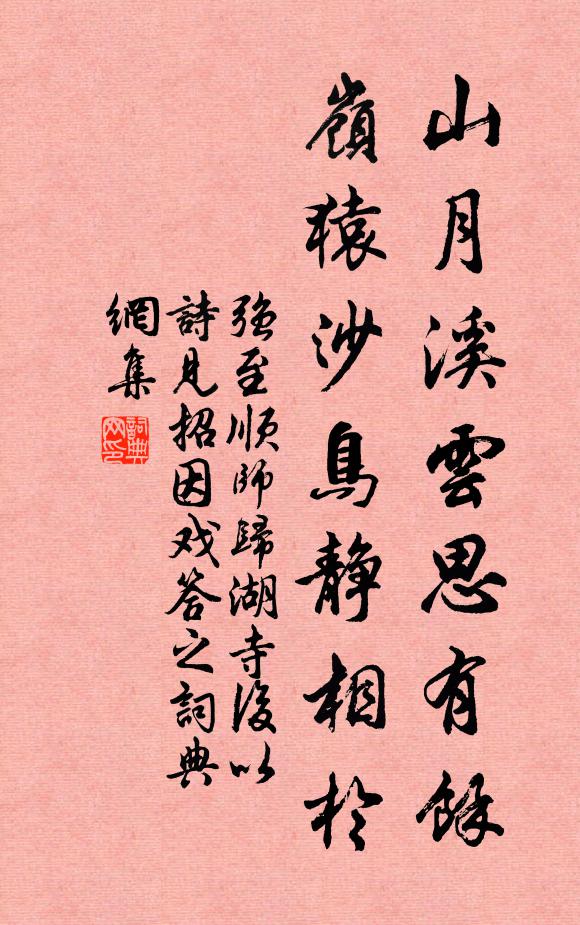 山月溪雲思有餘
嶺猿沙鳥靜相於
強至順師歸湖寺後以
詩見招因戏答之詞典
網集
詞典
网印